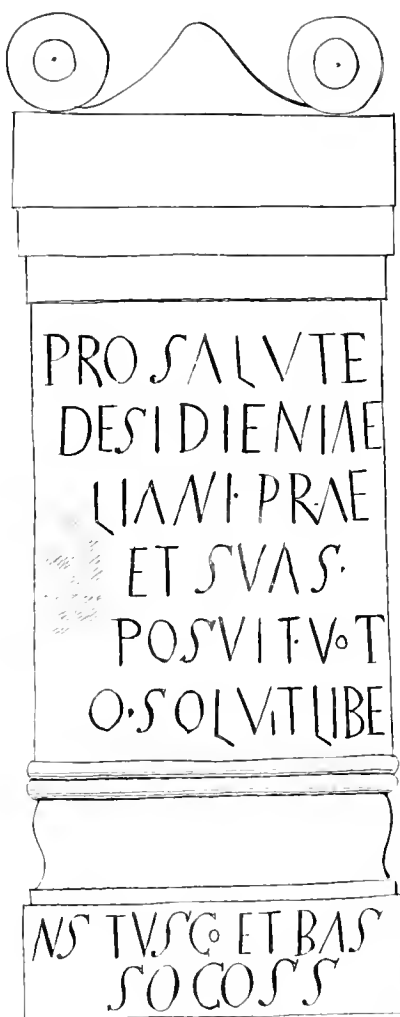 PRO SALVTE
DESIDIENIAE
LIANI· PRAE
ET SVAS·
POSVIT·VOT
O·SOLVIT LIBE
NS TVSCO ET BAS
SO COSS